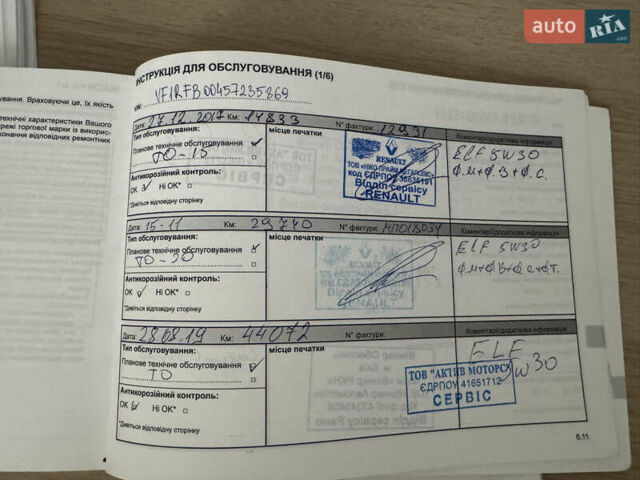 auto RIA.com
вання. Враховуючи це, їх якість
технічні характеристики Вашого
режі торгової марки із викорис-
конання відповідних ремонтних
ІНСТРУКЦІЯ ДЛЯ ОБСЛУГОВУВАННЯ (1/6)
VIN: VF1RFB00457235269
Дата: 27.12.2017 Км: 14833 N° фактури: 12931 Коментарі/додаткова інформація
Тип обслуговування: місце печатки
Планове технічне обслуговування
ТО-15
Антикорозійний контроль:
ОК Ні ОК*
*Дивіться відповідну сторінку
RENAULT
ТОВ "НІКО-ПРАЙМ МЕГАПОЛІС"
код ЄДРПОУ 36636191
Відділ сервісу
RENAULT
ELF 5W30
Ф.М+Ф.В+Ф.С.
Дата: 15-11 Км: 29740 N° фактури: МП018034 Коментарі/додаткова інформація
Тип обслуговування: місце печатки
Планове технічне обслуговування
ТО-30
Антикорозійний контроль:
ОК Ні ОК*
*Дивіться відповідну сторінку
Відділ сервісу
RENAULT
ELF 5W30
Ф.М+Ф.В+Ф.С+Ф.Т.
Дата: 28.08.19 Км: 44072 N° фактури: Коментарі/додаткова інформація
Тип обслуговування: місце печатки
Планове технічне обслуговування
ТО
Антикорозійний контроль:
ОК Ні ОК*
*Дивіться відповідну сторінку
ELF
5W30
ТОВ "АКТИВ МОТОРС"
ЄДРПОУ 41651712
СЕРВІС
6.11